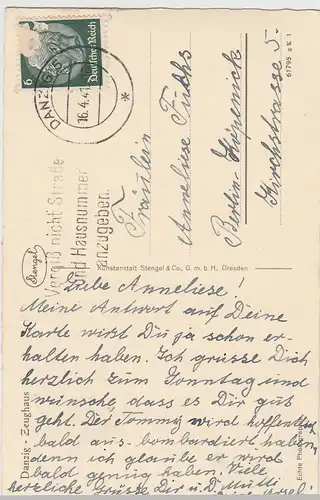 6
Deutsches Reich
DANZIG 5
16.4.41
*
Vergiß nicht Straße
und Hausnummer
anzugeben.
Fräulein
Anneliese Fuchs
Berlin-Köpenick
Kirchstrasse 5.
61795 e K 1
Stengel
Kunstanstalt Stengel & Co., G. m. b. H., Dresden
Danzig - Zeughaus
Echte Photographie
Liebe Anneliese!
Meine Antwort auf Deine
Karte wirst Du ja schon er-
halten haben. Ich grüsse Dich
herzlich zum Sonntag und
wünsche, dass es Dir gut
geht. Der Tommy wird hoffentlich
bald aus-bombardiert haben,
denn ich glaube er wird
bald genug haben. Viele
herzliche Grüsse Dir u. D. Mutti